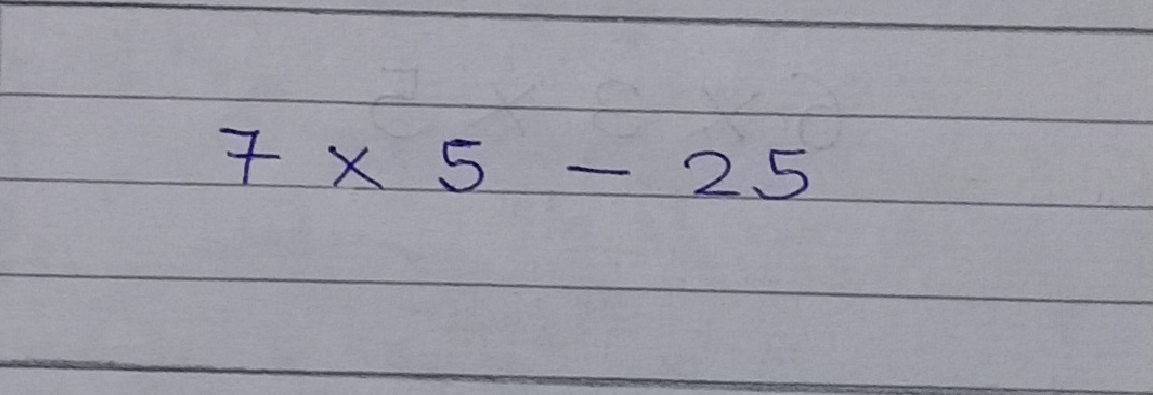 7 × 5 - 25